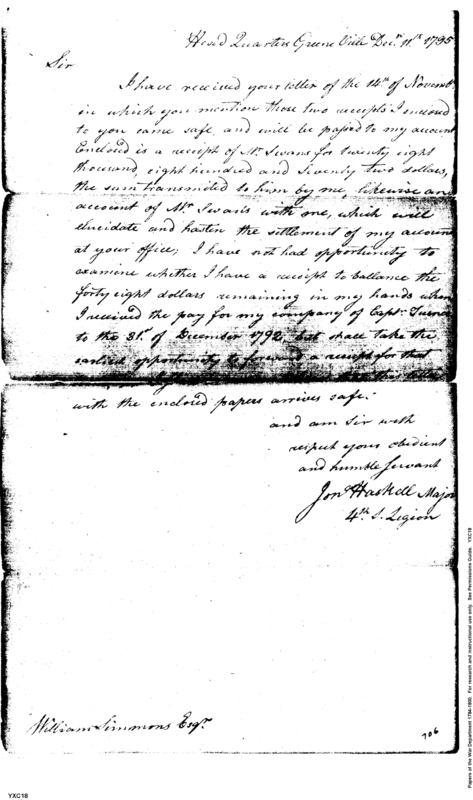 Head Quarters Greene Ville Decr. 11th. 1795
Sir
I have received your letter of the 14th. of November
in which you mention those two receipts I enclosed
to you came safe, and will be passed to my account
Enclosed is a receipt of Mr. Swans for twenty eight
thousand, eight hundred and Seventy two dollars,
the sum transmitted to him by me, likewise an
account of Mr. Swan's with me, which will
elucidate and hasten the settlement of my account
at your office; I have not had opportunity to
examine whether I have a receipt to ballance the
forty eight dollars remaining in my hands when
I received the pay for my company of Capt. Turner
to the 31st. of December 1792, but shall take the
earliest opportunity to forward a receipt for that
with the enclosed papers arrives safe.
and am Sir with
respect your obedient
and humble Servant
Jona. Haskell Major
4th. S. Legion
William Simmons Esqr.
706
YXC18
Papers of the War Department 1784-1800. For research and instructional use only. See Permissions Guide. YXC18